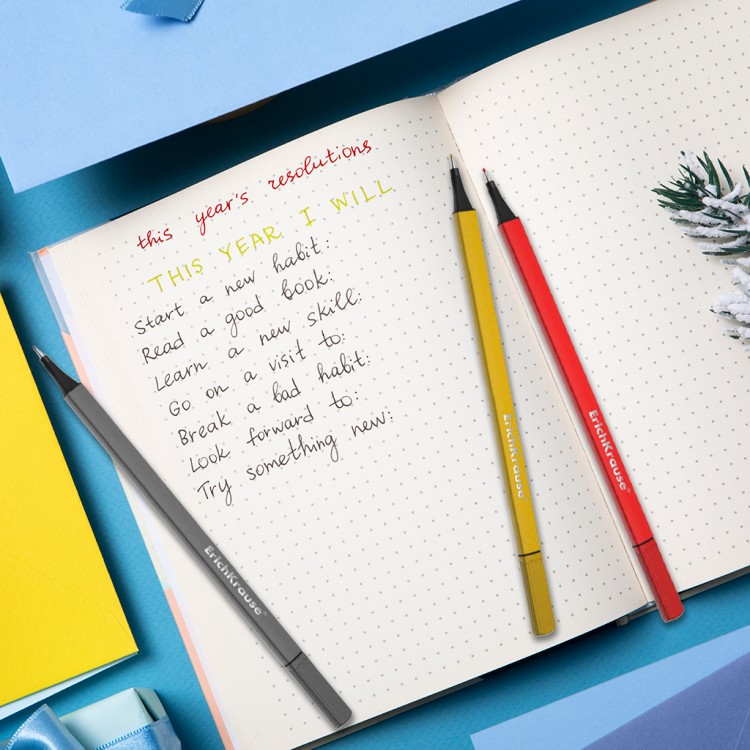 this year's resolutions
THIS YEAR I WILL
Start a new habit:
Read a good book:
Learn a new skill:
Go on a visit to:
Break a bad habit:
Look forward to:
Try something new:
ErichKrause
ErichKrause
ErichKrause